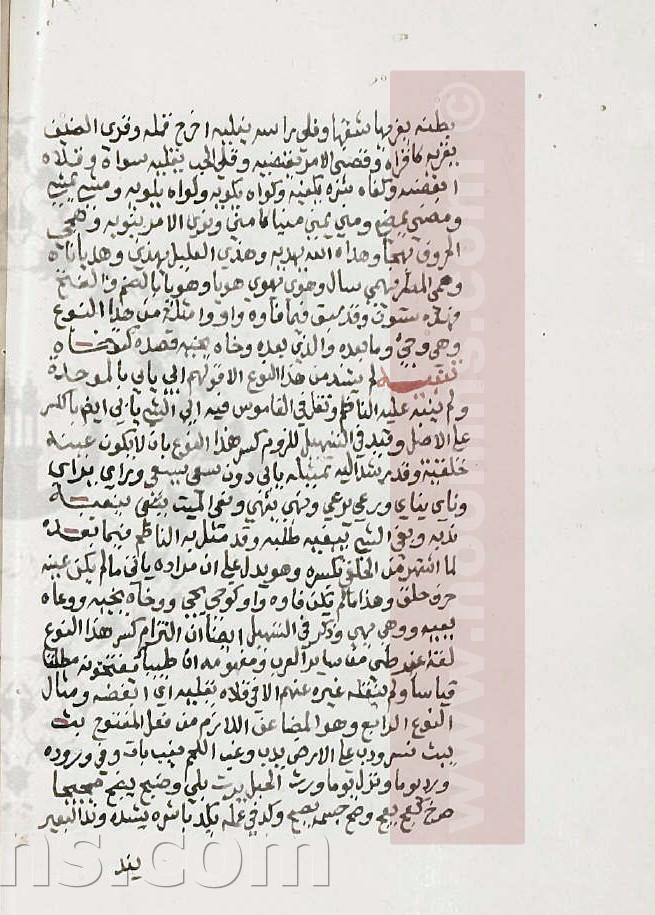 بطنه يفريها شقها وفلى راسه يفليه اخرج قمله وقرى الضيف
يقريه كاقراه وقضى الامر يقضيه وقلى الحب يقليه سواه وقلاه
ابغضه وكفاه شره يكفيه وكواه يكويه ولواه يلويه ومشى يمشي
ومضى يمضي ومنى يمني منيا كامنى ونوى الامر ينويه وهمى
وهداه الله يهديه وهذى العليل يهذي وهذيانا
وهمى المطر يهمي سال وهوى يهوي هويا وهويا بالضم والفتح
فهذه ستون وقد سبق فيما فاوه واو امثلة من هذا النوع
وهي وجى وما بعده والذي بعده وخاه يخيه قصده
تنبيه لم يشذ من هذا النوع الا قولهم ابى يابى بالموحدة
ولم ينبه عليه الناظم ونقل في القاموس فيه ابى الشي يابي ايضا بالكسر
على الاصل وقيد في التسهيل للزوم كسر هذا النوع بان لا يكون عينه
حلقية وقد يرشد اليه تمثيله ياتي دون سعى يسعى وراى يراى
وناى يناى ورعى يرعى ونهى ينهى ونعى الميت ينعى
ندبه وبغى الشي يبغيه طلبه وقد مثل به الناظم فيما بعد
لما اشتهر من الحلقي بكسره وهو يدل على ان مراده ياتي ما لم يكن عينه
حرف حلق وهذا ما لم يكن فاوه واوا كوحى يحي ووخاه يخيه ووعاه
يعيه ووهى يهي وذكر في التسهيل ايضا ان التزام كسر هذا النوع
لغة غير طي من ساير العرب ومفهومه ان طيا يفتحونه مطلقا
قياسا ولم ينقله غيره عنهم الا في قلاه يقليه اي ابغضه ومثال
النوع الرابع وهو المضاعف اللازم من فعل المفتوح
على الارض يدب وغب اللحم يغب بات وفي وروده
ورد يوما ونزل يوما ورث الحبل يرث بلي وضج يضج ضجيجا
صرخ وصح جسمه يصح وكد في عمله يكد باشره بشده وند البعير
يند